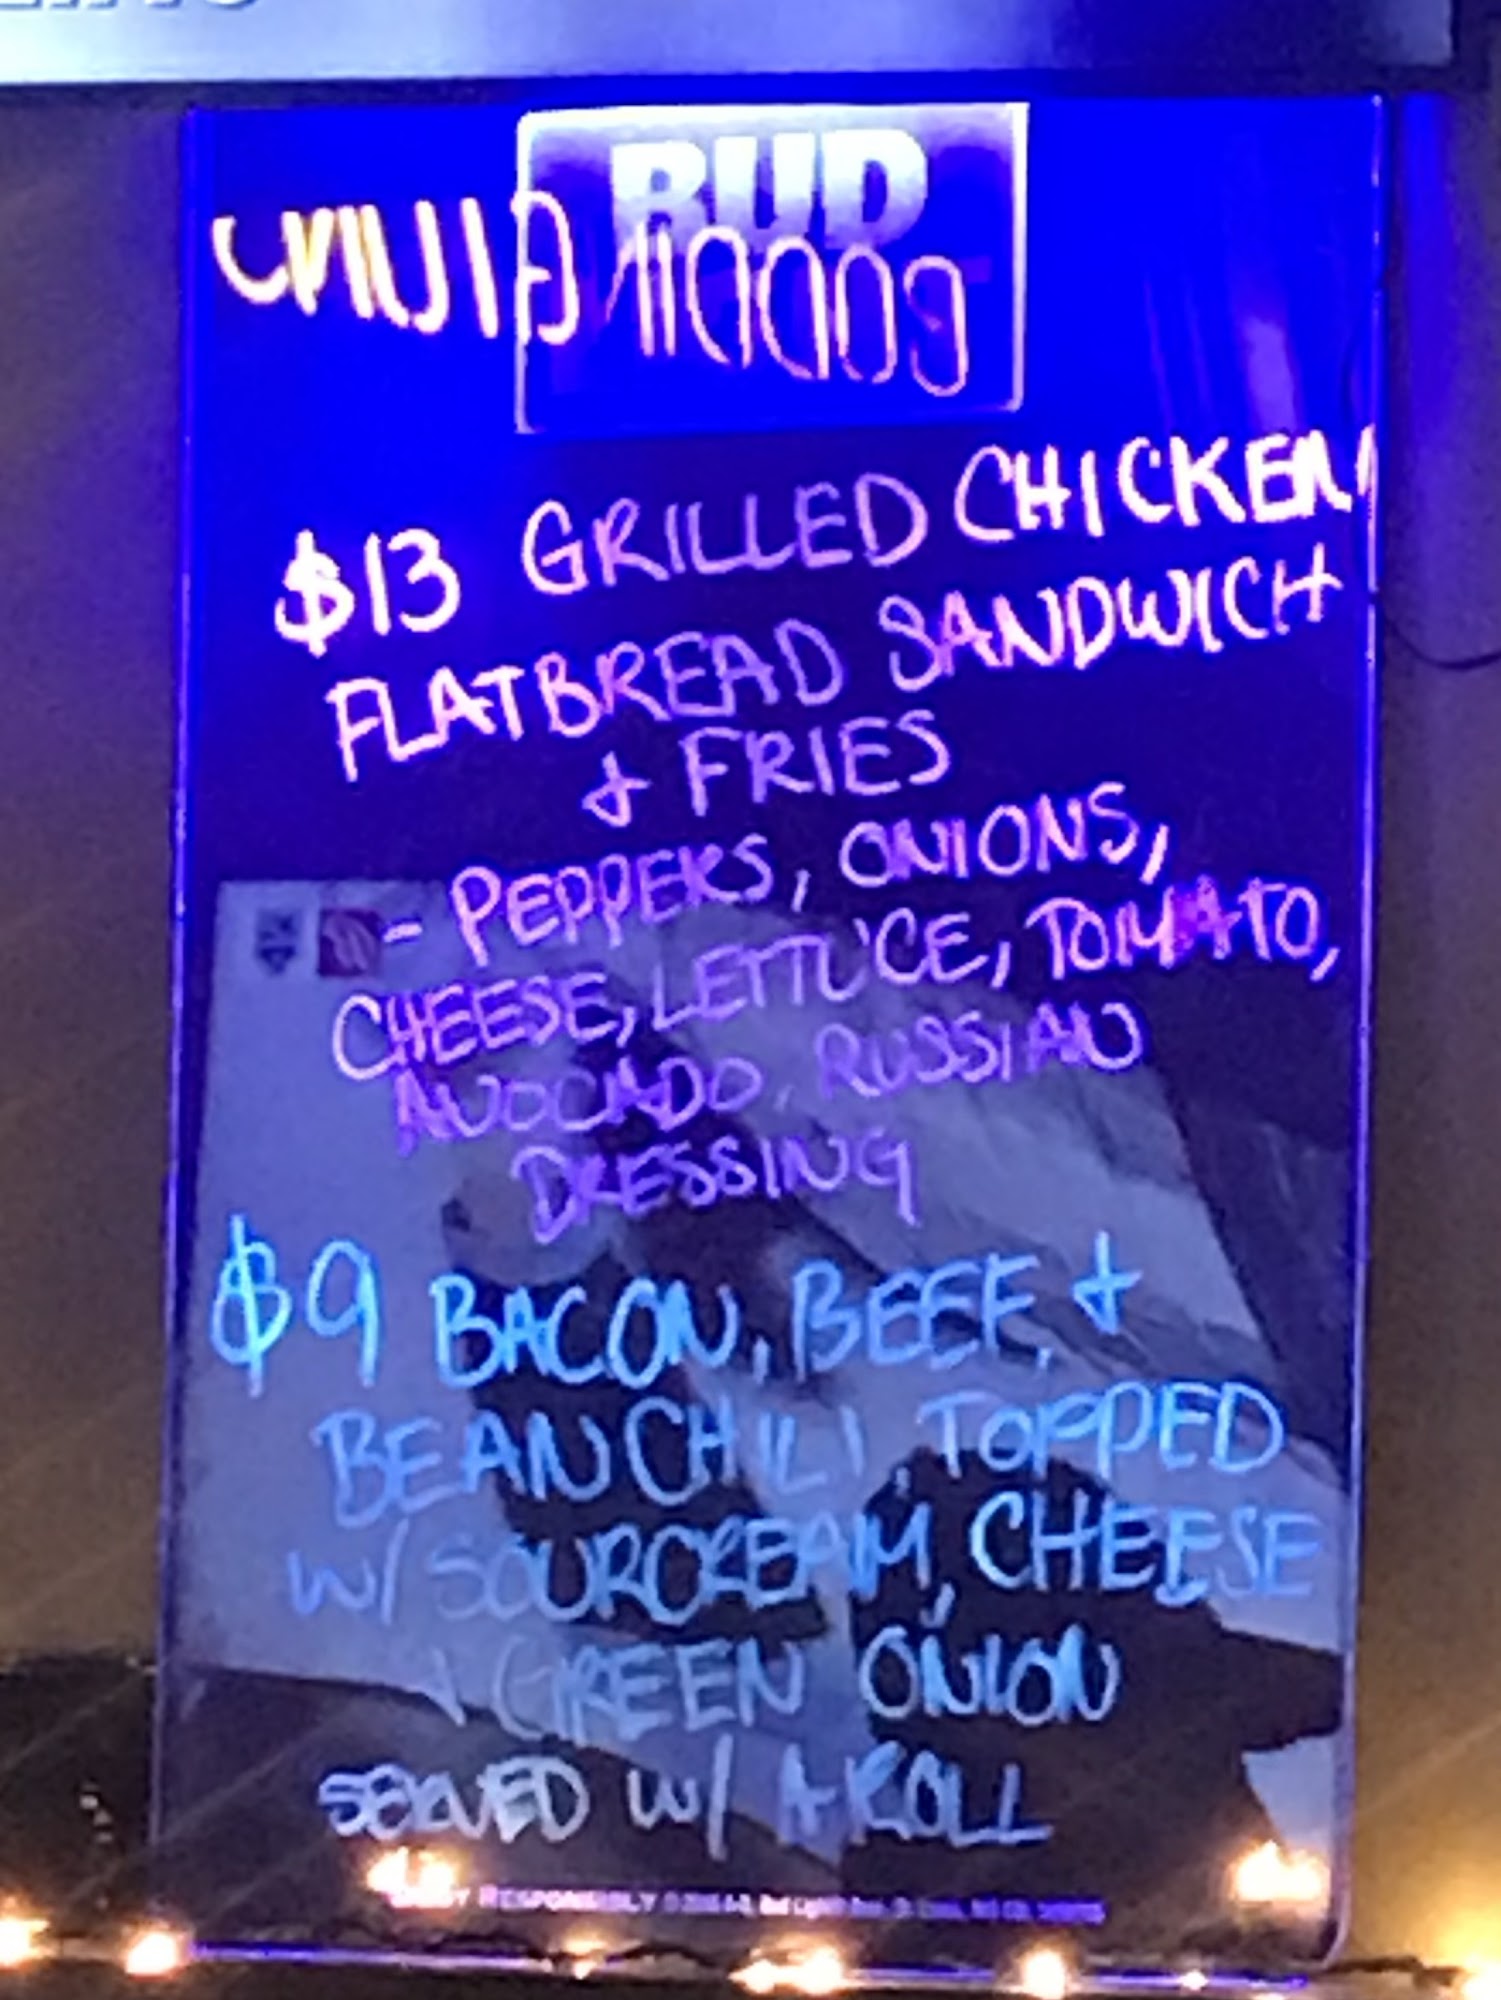 BUD
$13 GRILLED CHICKEN
FLATBREAD SANDWICH
& FRIES
- PEPPERS, ONIONS,
CHEESE, LETTUCE, TOMATO,
AVOCADO, RUSSIAN
DRESSING
$9 BACON, BEEF, &
BEAN CHILI, TOPPED
W/ SOURCREAM, CHEESE
& GREEN ONION
SERVED W/ A ROLL
RESPONSIBLY